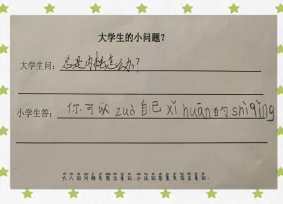 大学生的小问题？
大学生问：总是内耗怎么办？
小学生答：你可以zuò自己xǐhuān的shìqing